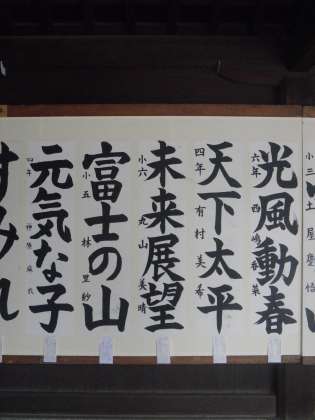 小三 土屋慶悟
光風動春
六年 西嶋
天下太平
四年 有村美希
未来展望
小六 丸山美晴
富士の山
小五 林里紗
元気な子
四年
すみれ